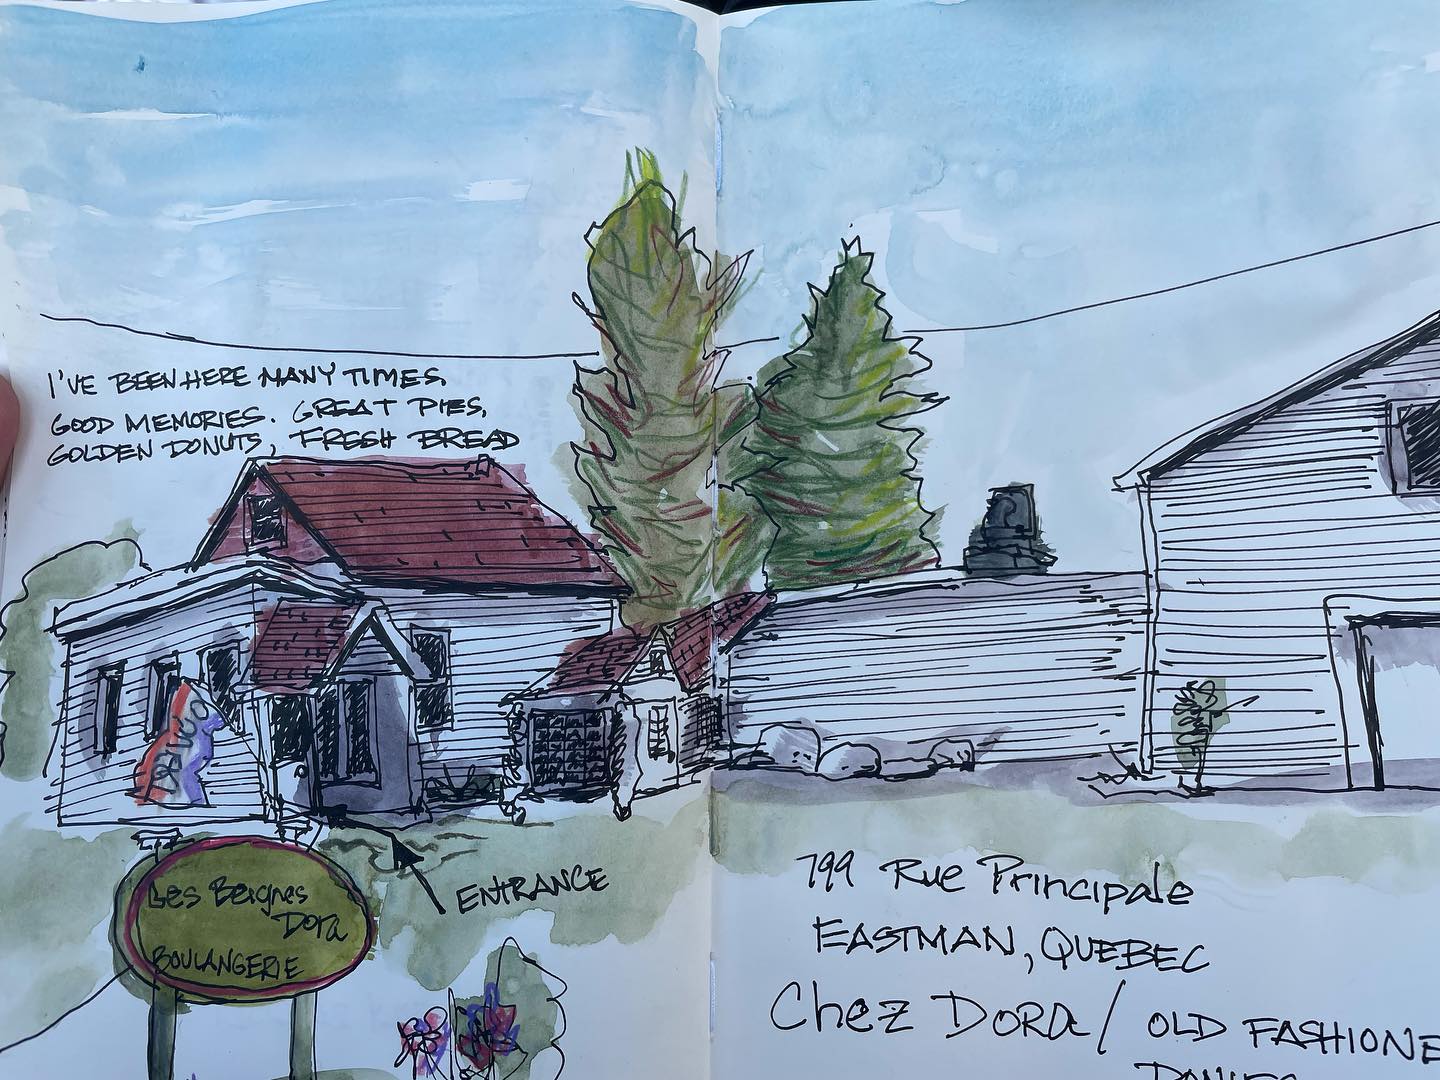 I'VE BEEN HERE MANY TIMES.
GOOD MEMORIES. GREAT PIES,
GOLDEN DONUTS, FRESH BREAD
Les Beignes
Dora
BOULANGERIE
ENTRANCE
799 Rue Principale
EASTMAN, QUEBEC
Chez DORA / OLD FASHIONE